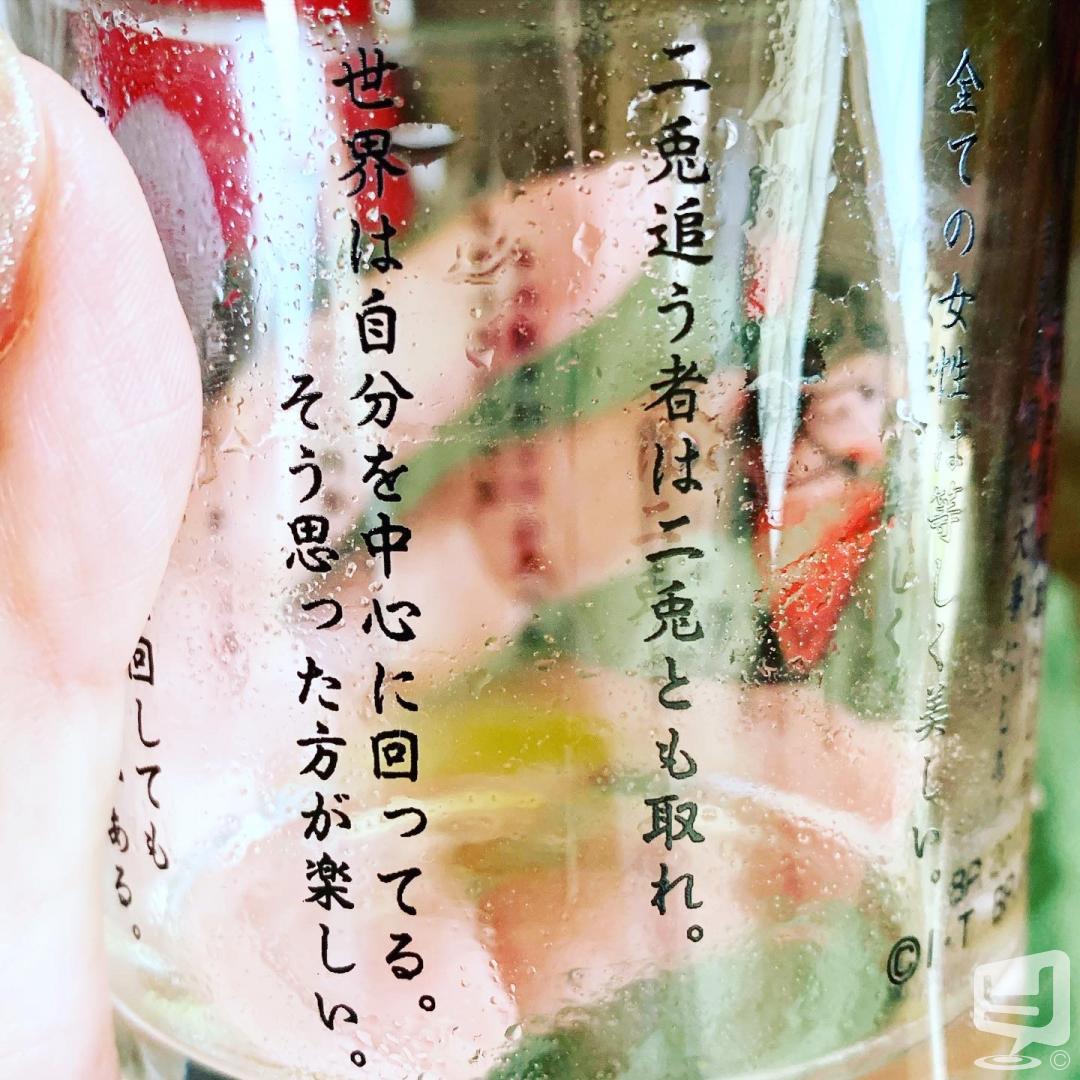 全ての女性は等しく美しい。
二兎追う者は二兎とも取れ。
世界は自分を中心に回ってる。
そう思った方が楽しい。
回しても
ある。
©I.T